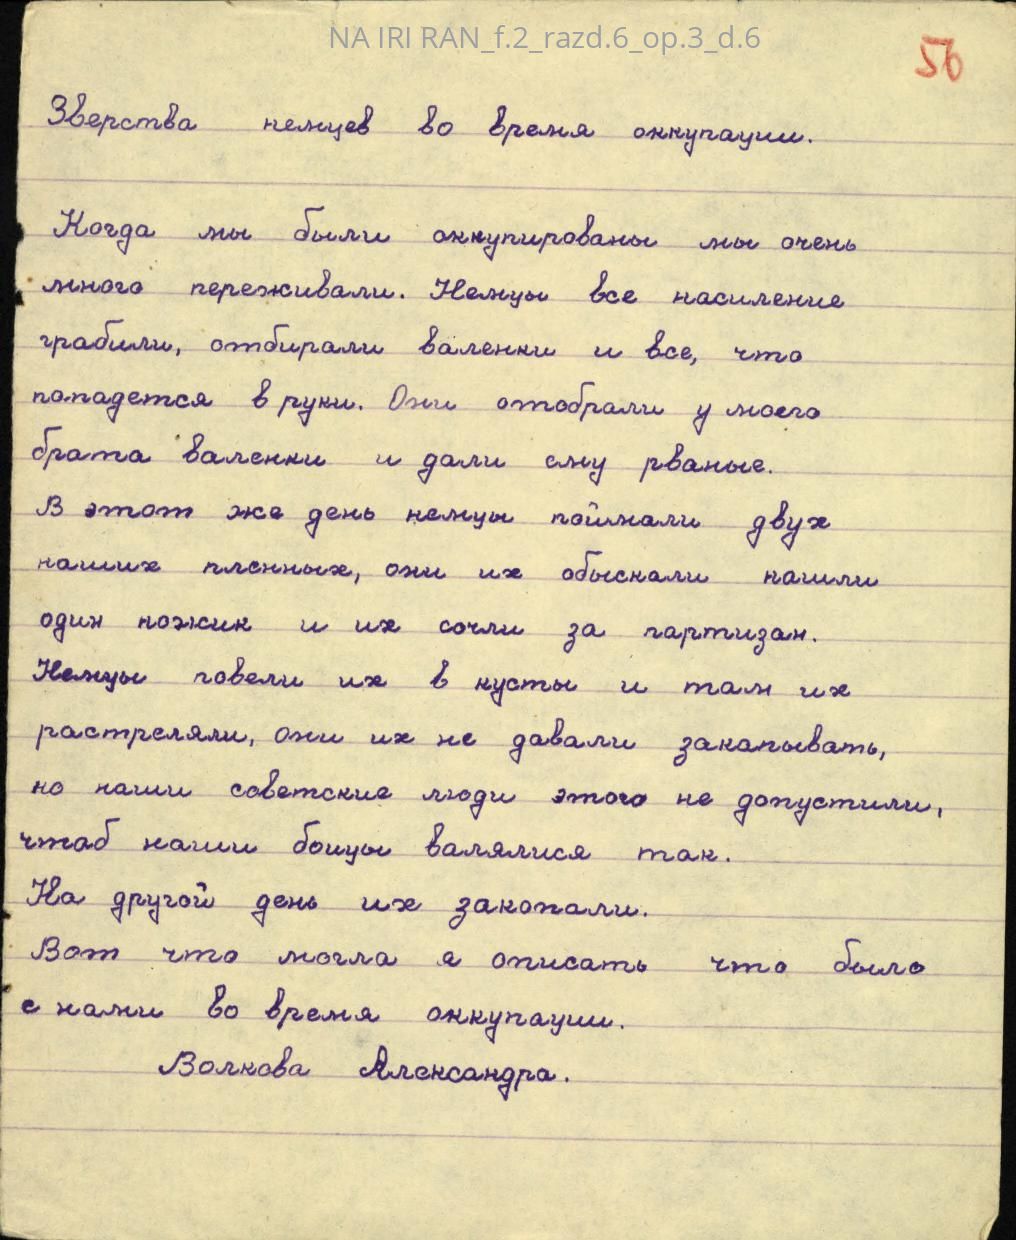 NA IRI RAN_f.2_razd.6_op.3_d.6
56
Зверства немцев во время оккупации.
Когда мы были оккупированы мы очень
много переживали. Немцы все насиление
грабили, отбирали валенки и все, что
попадется в руки. Они отобрали у моего
брата валенки и дали ему рваные.
В этот же день немцы поймали двух
наших пленных, они их обыскали нашли
один ножик и их сочли за партизан.
Немцы повели их в кусты и там их
растреляли, они их не давали закапывать,
но наши советские люди этого не допустили,
чтаб наши бойцы валялися так.
На другой день их закопали.
Вот что могла я описать что было
с нами во время оккупации.
Волкова Александра.